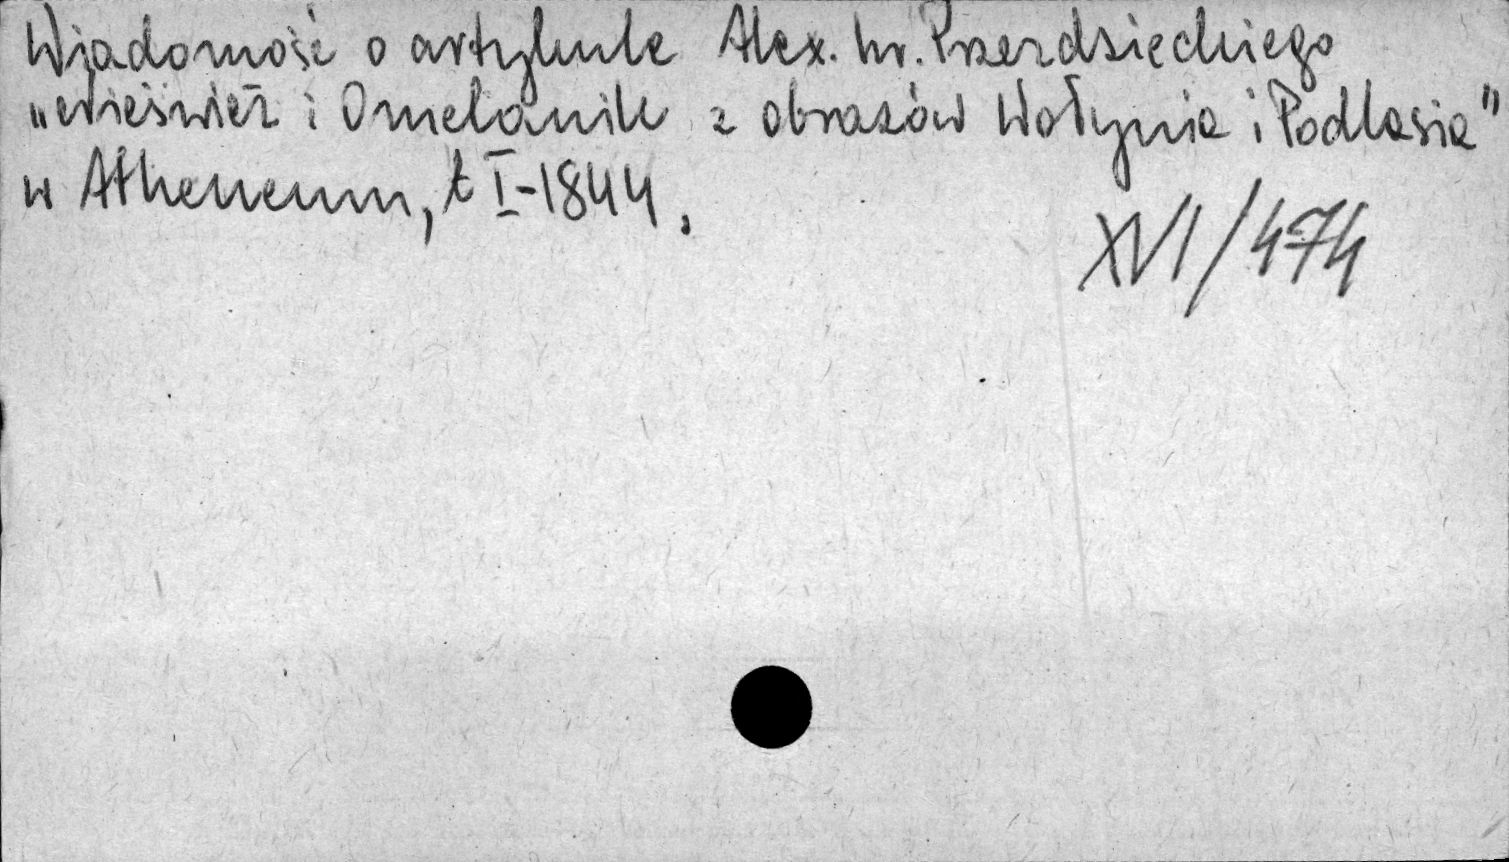 Wiadomość o artykule Alex. hr. Przezdzieckiego
„Nieśwież i Omelanik z obrazów Wołynia i Podlasia”
w Atheneum, t I-1844.
XVI/474